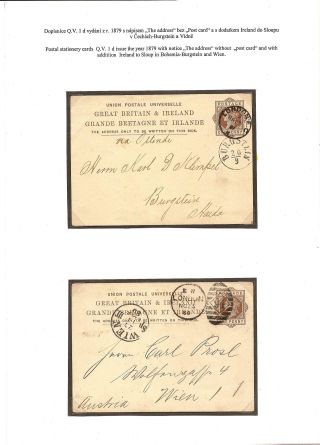 Doplanice Q.V. 1 d vydání z r. 1879 s nápisem „The address" bez „Post card" a s dodatkem Ireland do Sloupu
v Čechách-Burgstein a Vídně
Postal stationery cards Q.V. 1 d issue the year 1879 with notice „The address" without „post card" and with
addition Ireland to Sloup in Bohemia-Burgstein and Wien.
UNION POSTALE UNIVERSELLE
GREAT BRITAIN & IRELAND
GRANDE BRETAGNE ET IRLANDE
THE ADDRESS ONLY TO BE WRITTEN ON THIS SIDE.
POSTAGE
via Ostende
Herrn Karl D Klinkel
Burgstein
Haida
UNION POSTALE UNIVERSELLE
GREAT BRITAIN & IRELAND
GRANDE BRETAGNE ET IRLANDE
LONDON
WIEN
PENNY
Herrn Carl Prosl
Wolfganggasse 4
Wien
Austria